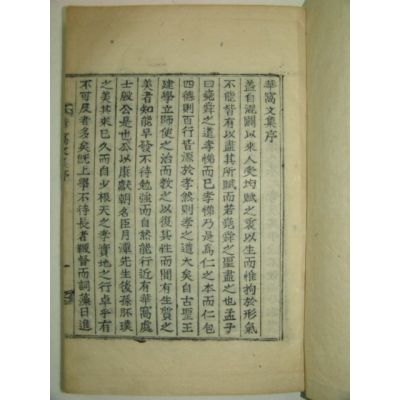 華窩文集序
蓋自混闢以來人受均賦之衷以生而惟拘於形氣
不能皆有以盡其所賦而若堯舜之聖盡之也孟子
曰堯舜之道孝悌而已孝悌乃是爲仁之本而仁包
四德則百行皆源於孝然則孝之道大矣自古聖王
建學立師使之治而敎之以復其性而間有生質之
美者知能早發不待勉強而自然能行近有華窩處
士殷公是也公以康獻朝名臣月潭先生後孫胚璞
之美其來已久而自少根天之孝實地之行卓乎有
不可及者多矣旣上學不待長者觀督而詞藻日進